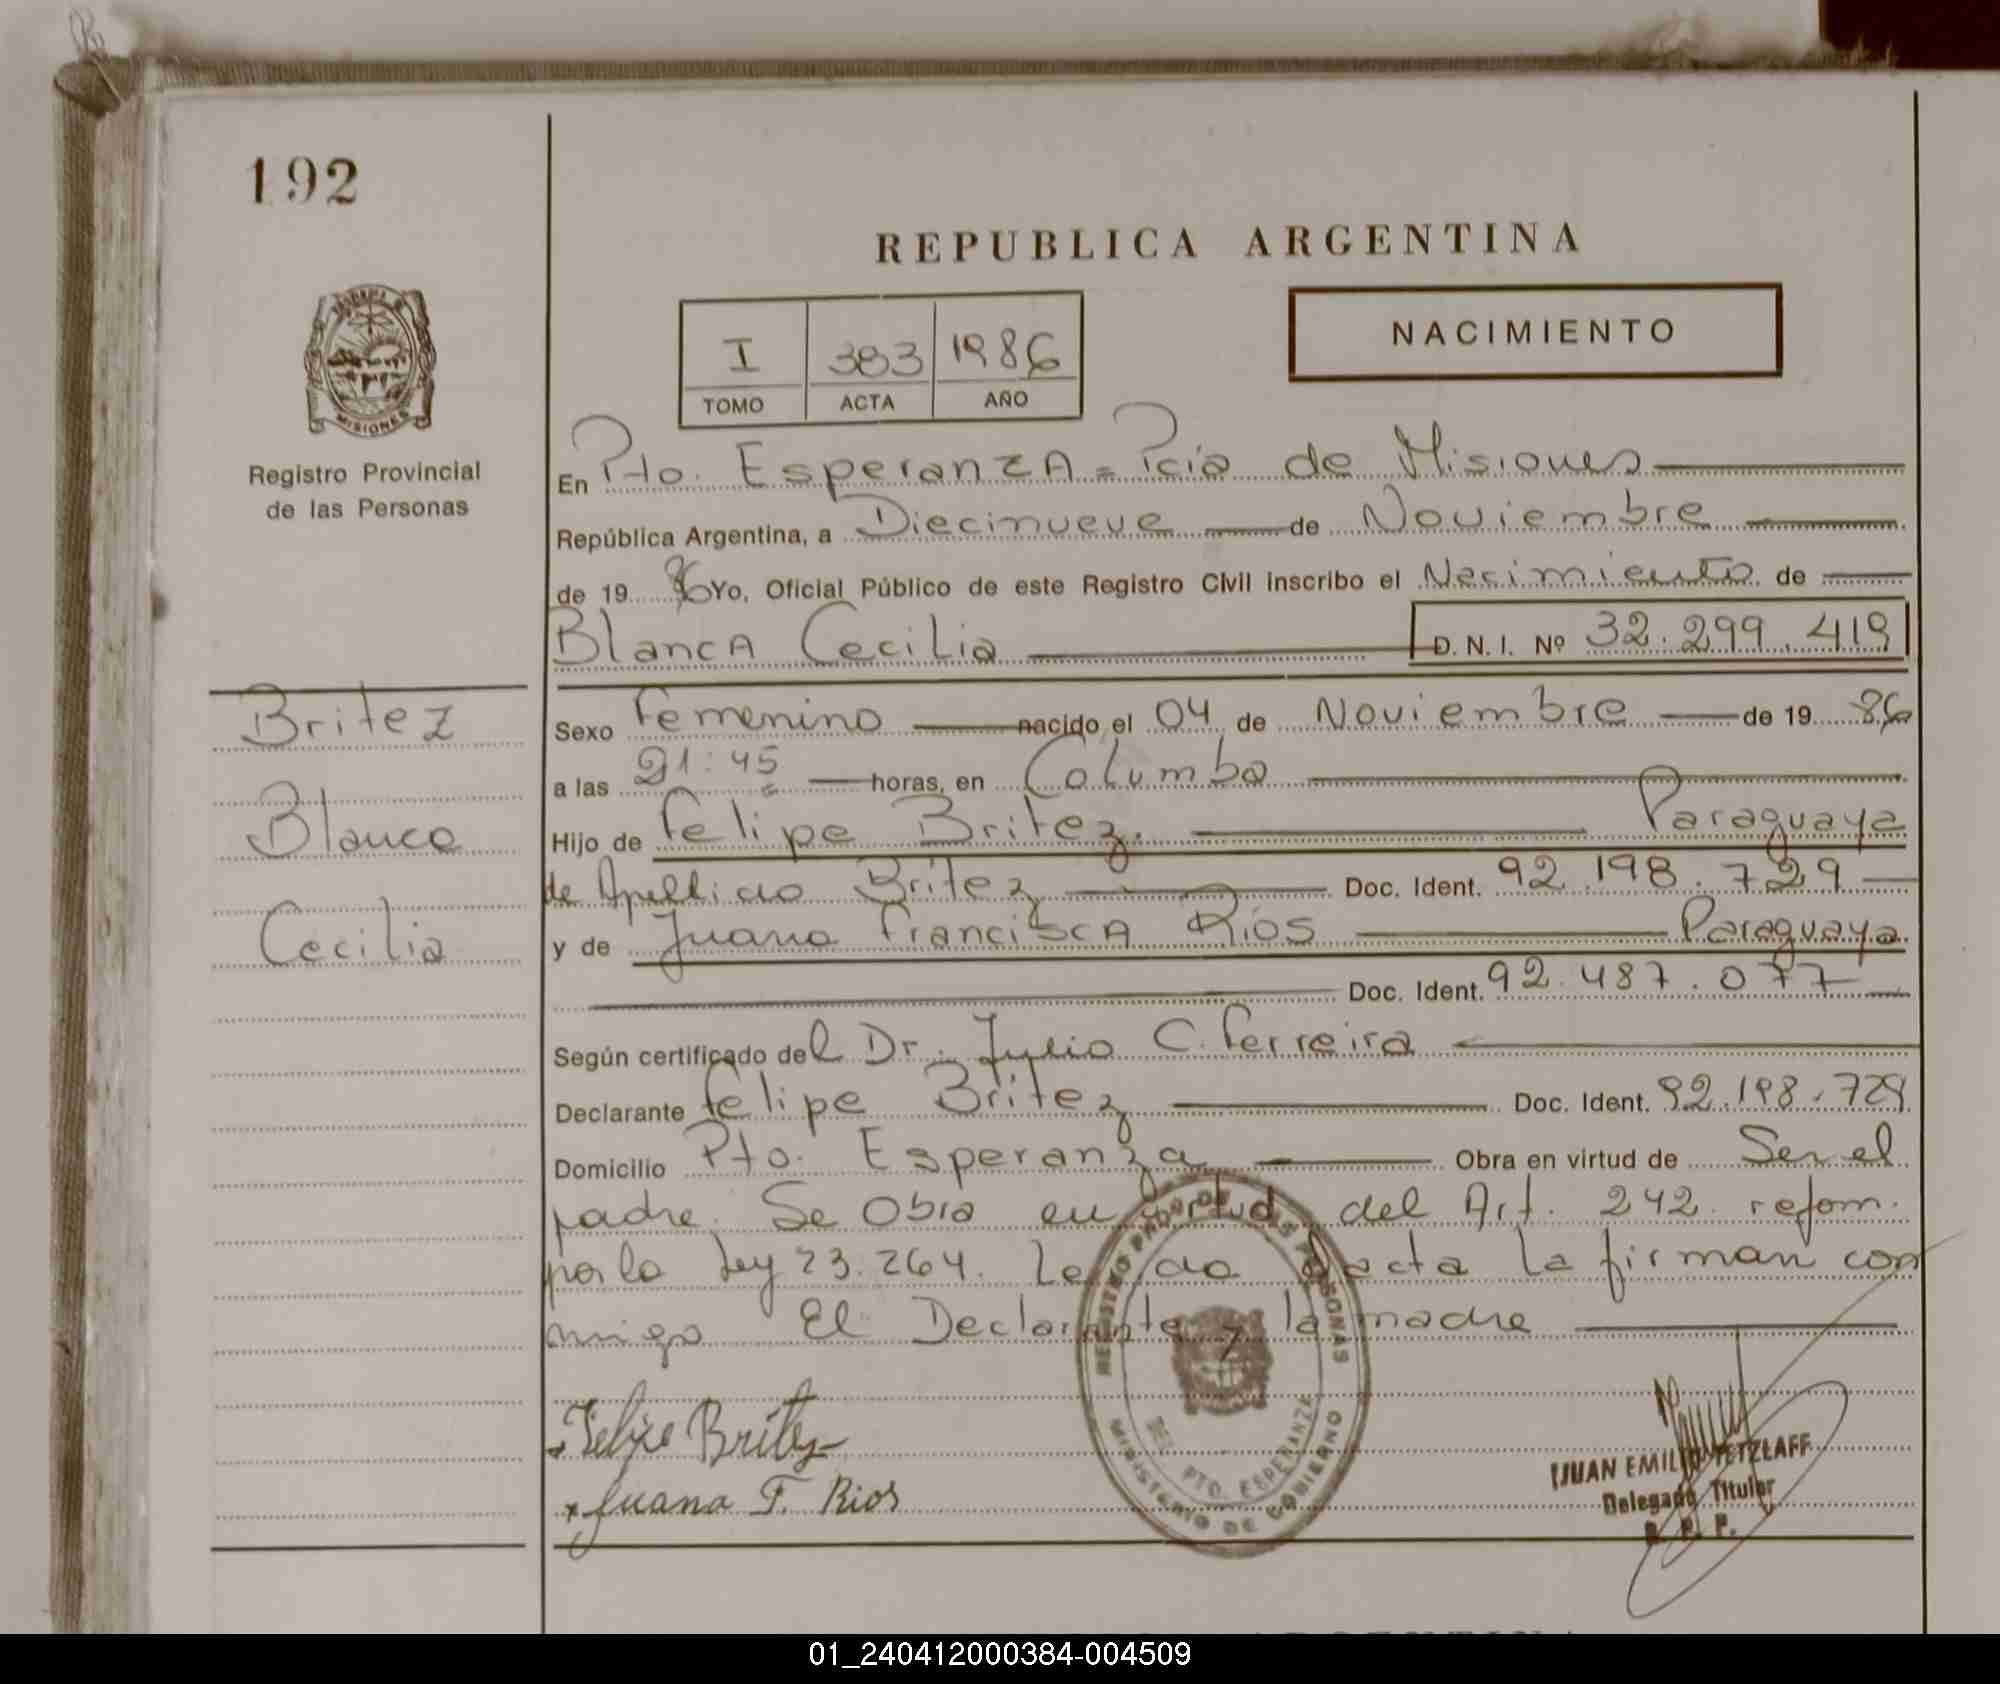 192
REPUBLICA ARGENTINA
NACIMIENTO
I 383 1986
TOMO ACTA AÑO
MISIONES
Registro Provincial
de las Personas
En Pto. Esperanza = Pcia de Misiones
República Argentina, a Diecinueve de Noviembre
de 19 86 Yo, Oficial Público de este Registro Civil inscribo el Nacimiento de
Blanca Cecilia D. N. I. Nº 32.299.419
Britez
Blanca
Cecilia
Sexo Femenino nacido el 04 de Noviembre de 19 86
a las 21:45 horas, en Columba
Hijo de Felipe Britez. Paraguaya
de Apellido Britez Doc. Ident. 92.198.729
y de Juana Francisca Ríos Paraguaya
Doc. Ident. 92.487.077
Según certificado del Dr. Julio C. Ferreira
Declarante Felipe Britez Doc. Ident. 92.198.729
Domicilio Pto. Esperanza Obra en virtud de Ser el
padre. Se Obra en virtud del Art. 242 refom.
por la Ley 23.264. Leida Acta la firman con
migo El Declarante y la madre
Felipe Britez
x Juana F. Rios
REGISTRO PROV. DE LAS PERSONAS
PTO. ESPERANZA
MINISTERIO DE GOBIERNO
JUAN EMILIO TETZLAFF
Delegado Titular
R. P. P.
01_240412000384-004509